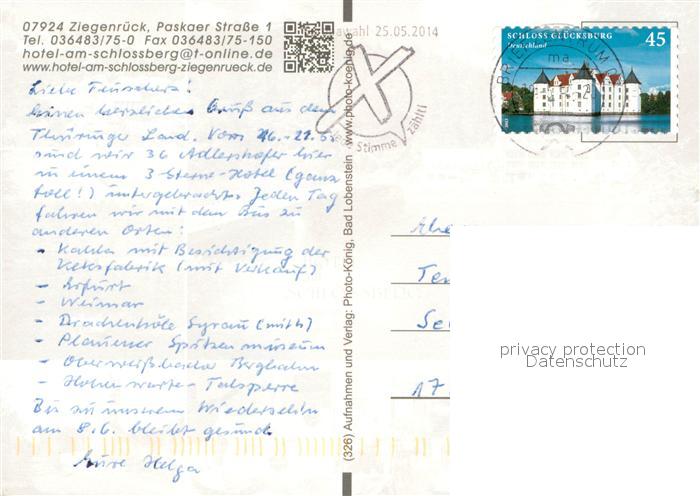 07924 Ziegenrück, Paskaer Straße 1
Tel. 036483/75-0 Fax 036483/75-150
hotel-am-schlossberg@t-online.de
www.hotel-am-schlossberg-ziegenrueck.de
Liebe
einen herzlichen Gruß aus dem
Thüringer Land. Vom 16.-21.5.
sind wir 36 Adlershofer hier
in einem 3-Sterne-Hotel (ganz
toll!) untergebracht. Jeden Tag
fahren wir mit dem Bus zu
anderen Orten:
- Kahla mit Besichtigung der
Keksfabrik (mit Verkauf)
- Erfurt
- Weimar
- Drachenhöle Syrau (mith)
- Plauener Spitzenmuseum
- Oberweißbacher Bergbahn
- Hohenwarte-Talsperre
Bis zu unserem Wiedersehen
am 8.6. bleibt gesund
Eure Helga
(326) Aufnahmen und Verlag: Photo-König, Bad Lobenstein · www.photo-koenig.de
wahl 25.05.2014
Stimme zählt!
SCHLOSS GLÜCKSBURG
Deutschland
45
BRIEFZENTRUM
17
privacy protection
Datenschutz